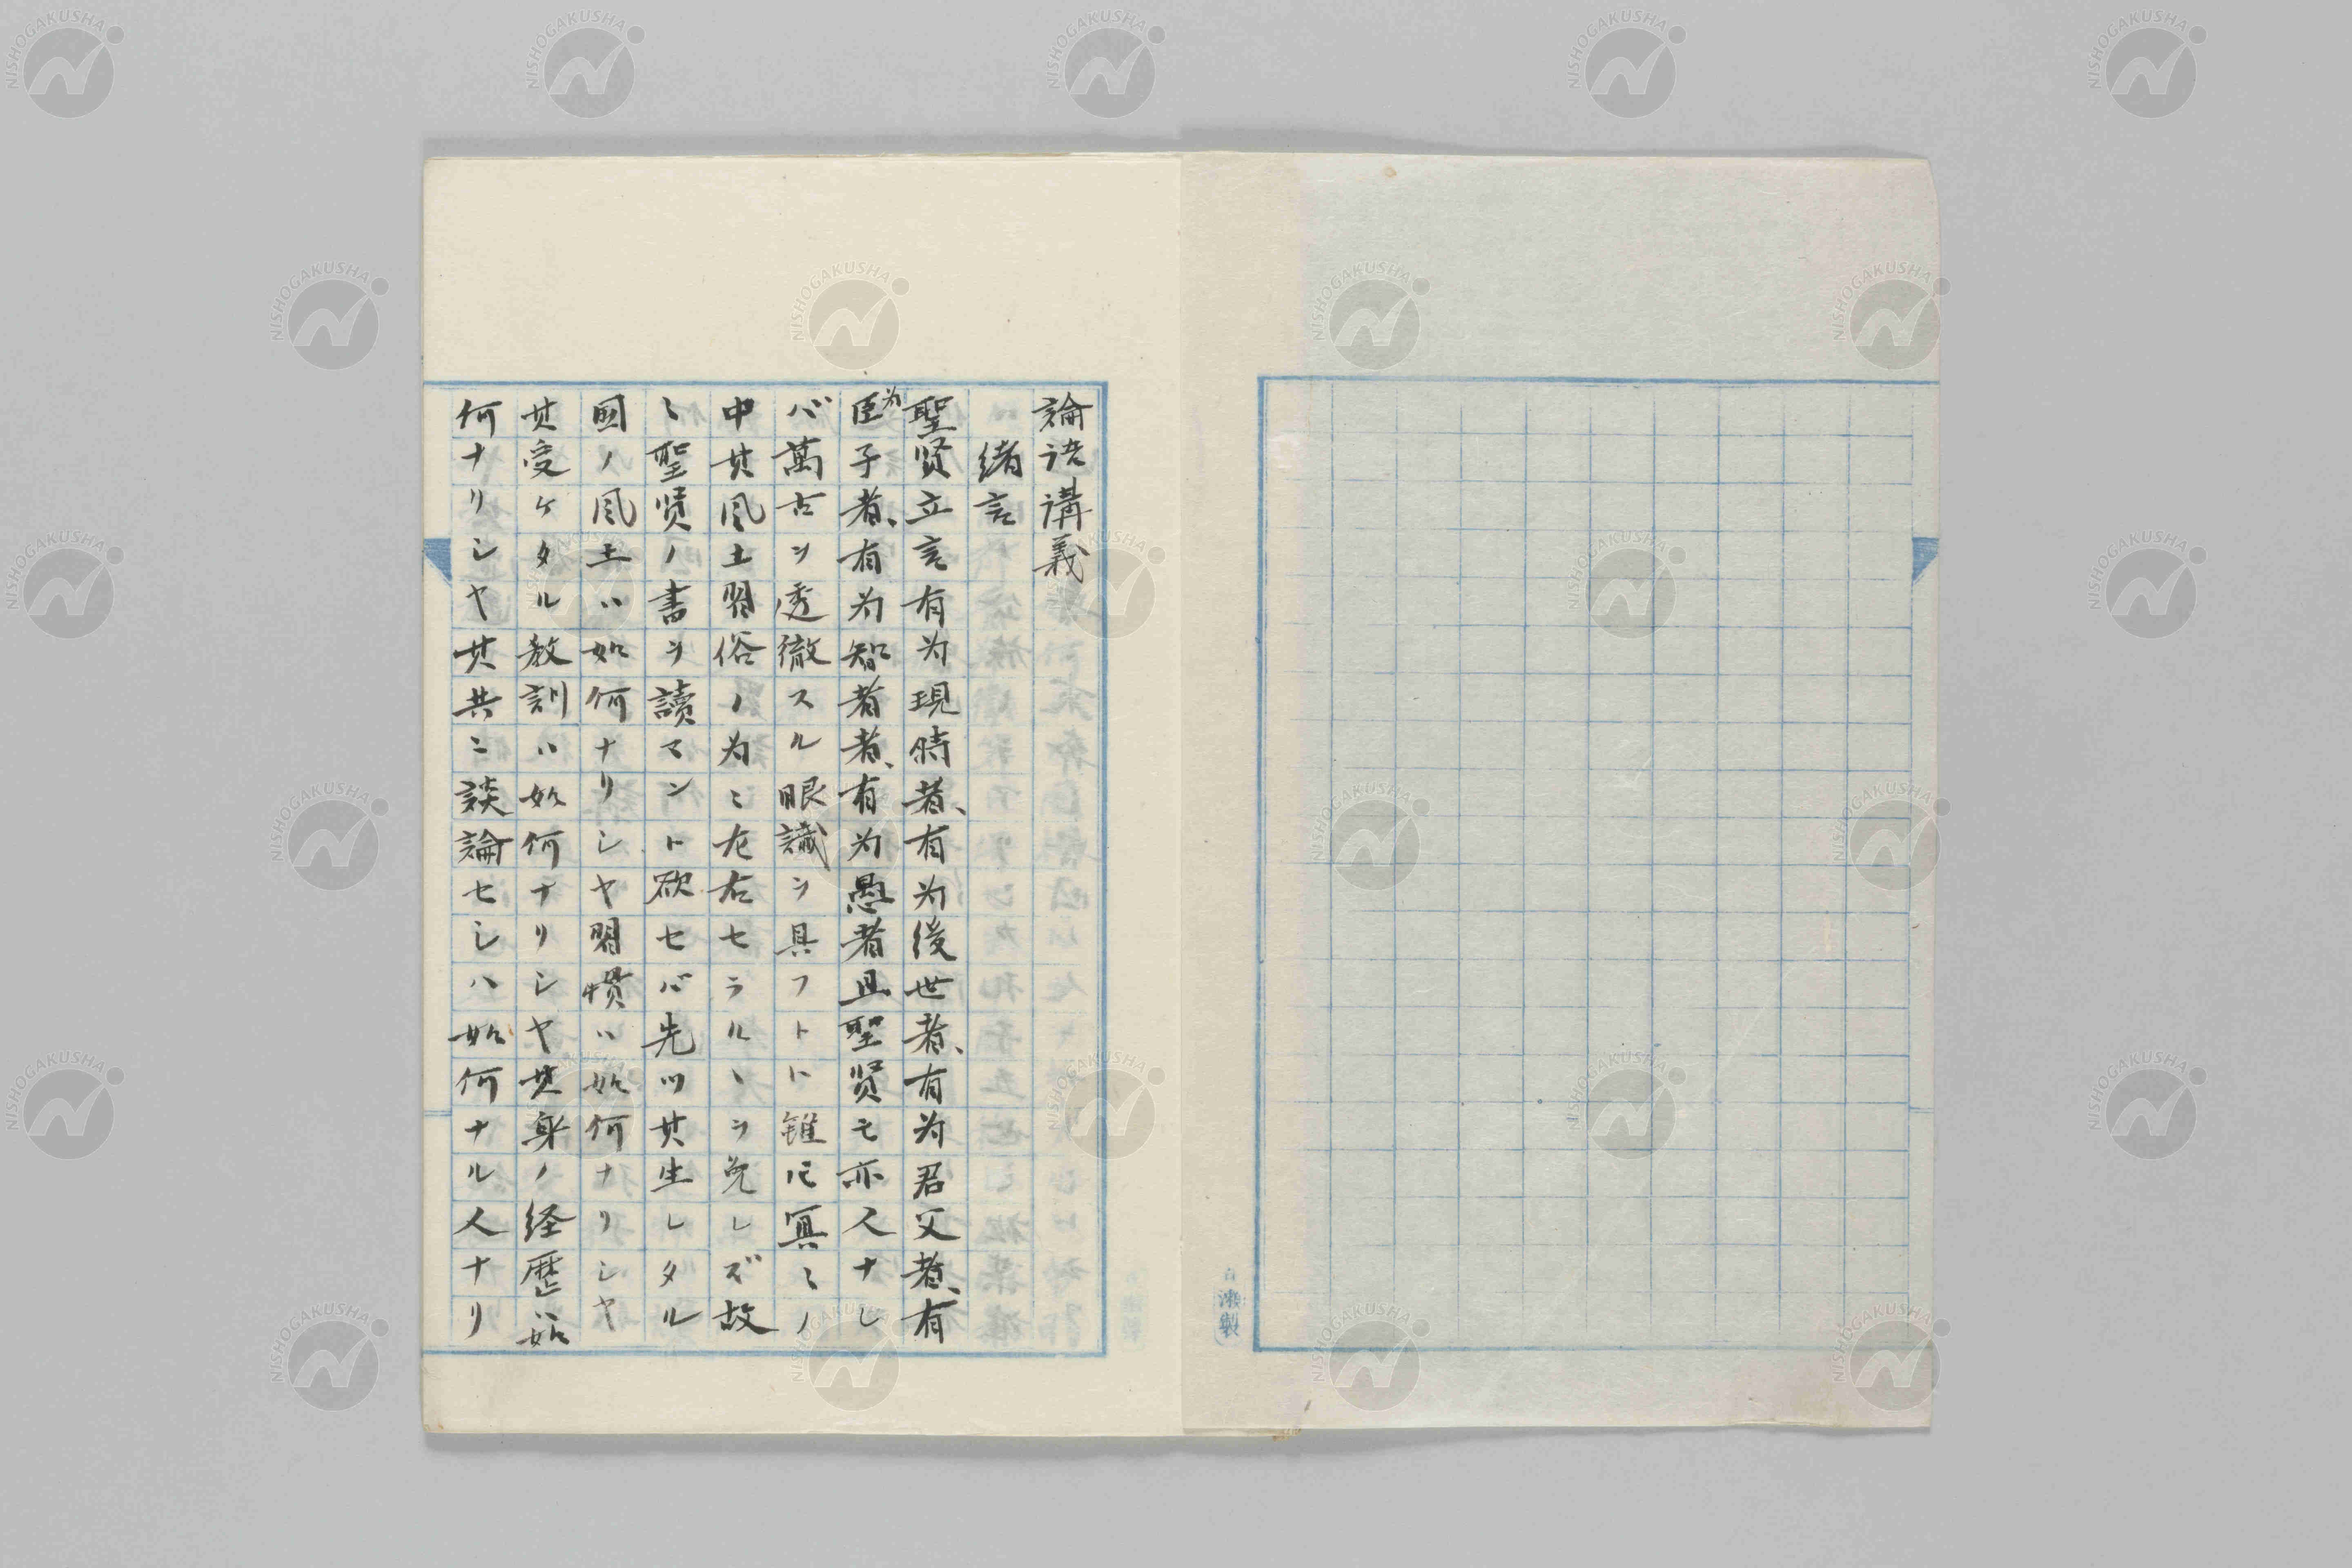 論語講義
緒言
聖賢立言有为現時者、有为後世者、有为君父者、有
为臣子者、有为智者者、有为愚者者且聖賢モ亦人ナレ
バ萬古ヲ透徹スル眼識ヲ具フトハ雖𪜈冥々ノ
中其風土習俗ノ为ミ左右セラルヽヲ免レズ故
ミ聖賢ノ書ヲ讀マント欲セバ先ツ其生レタル
國ノ風土ハ如何ナリシヤ習慣ハ如何ナリシヤ
其受ケタル教訓ハ如何ナリシヤ其身ノ経歴ハ如
何ナリシヤ其共ニ談論セシハ如何ナル人ナリ
製
NISHOGAKUSHA